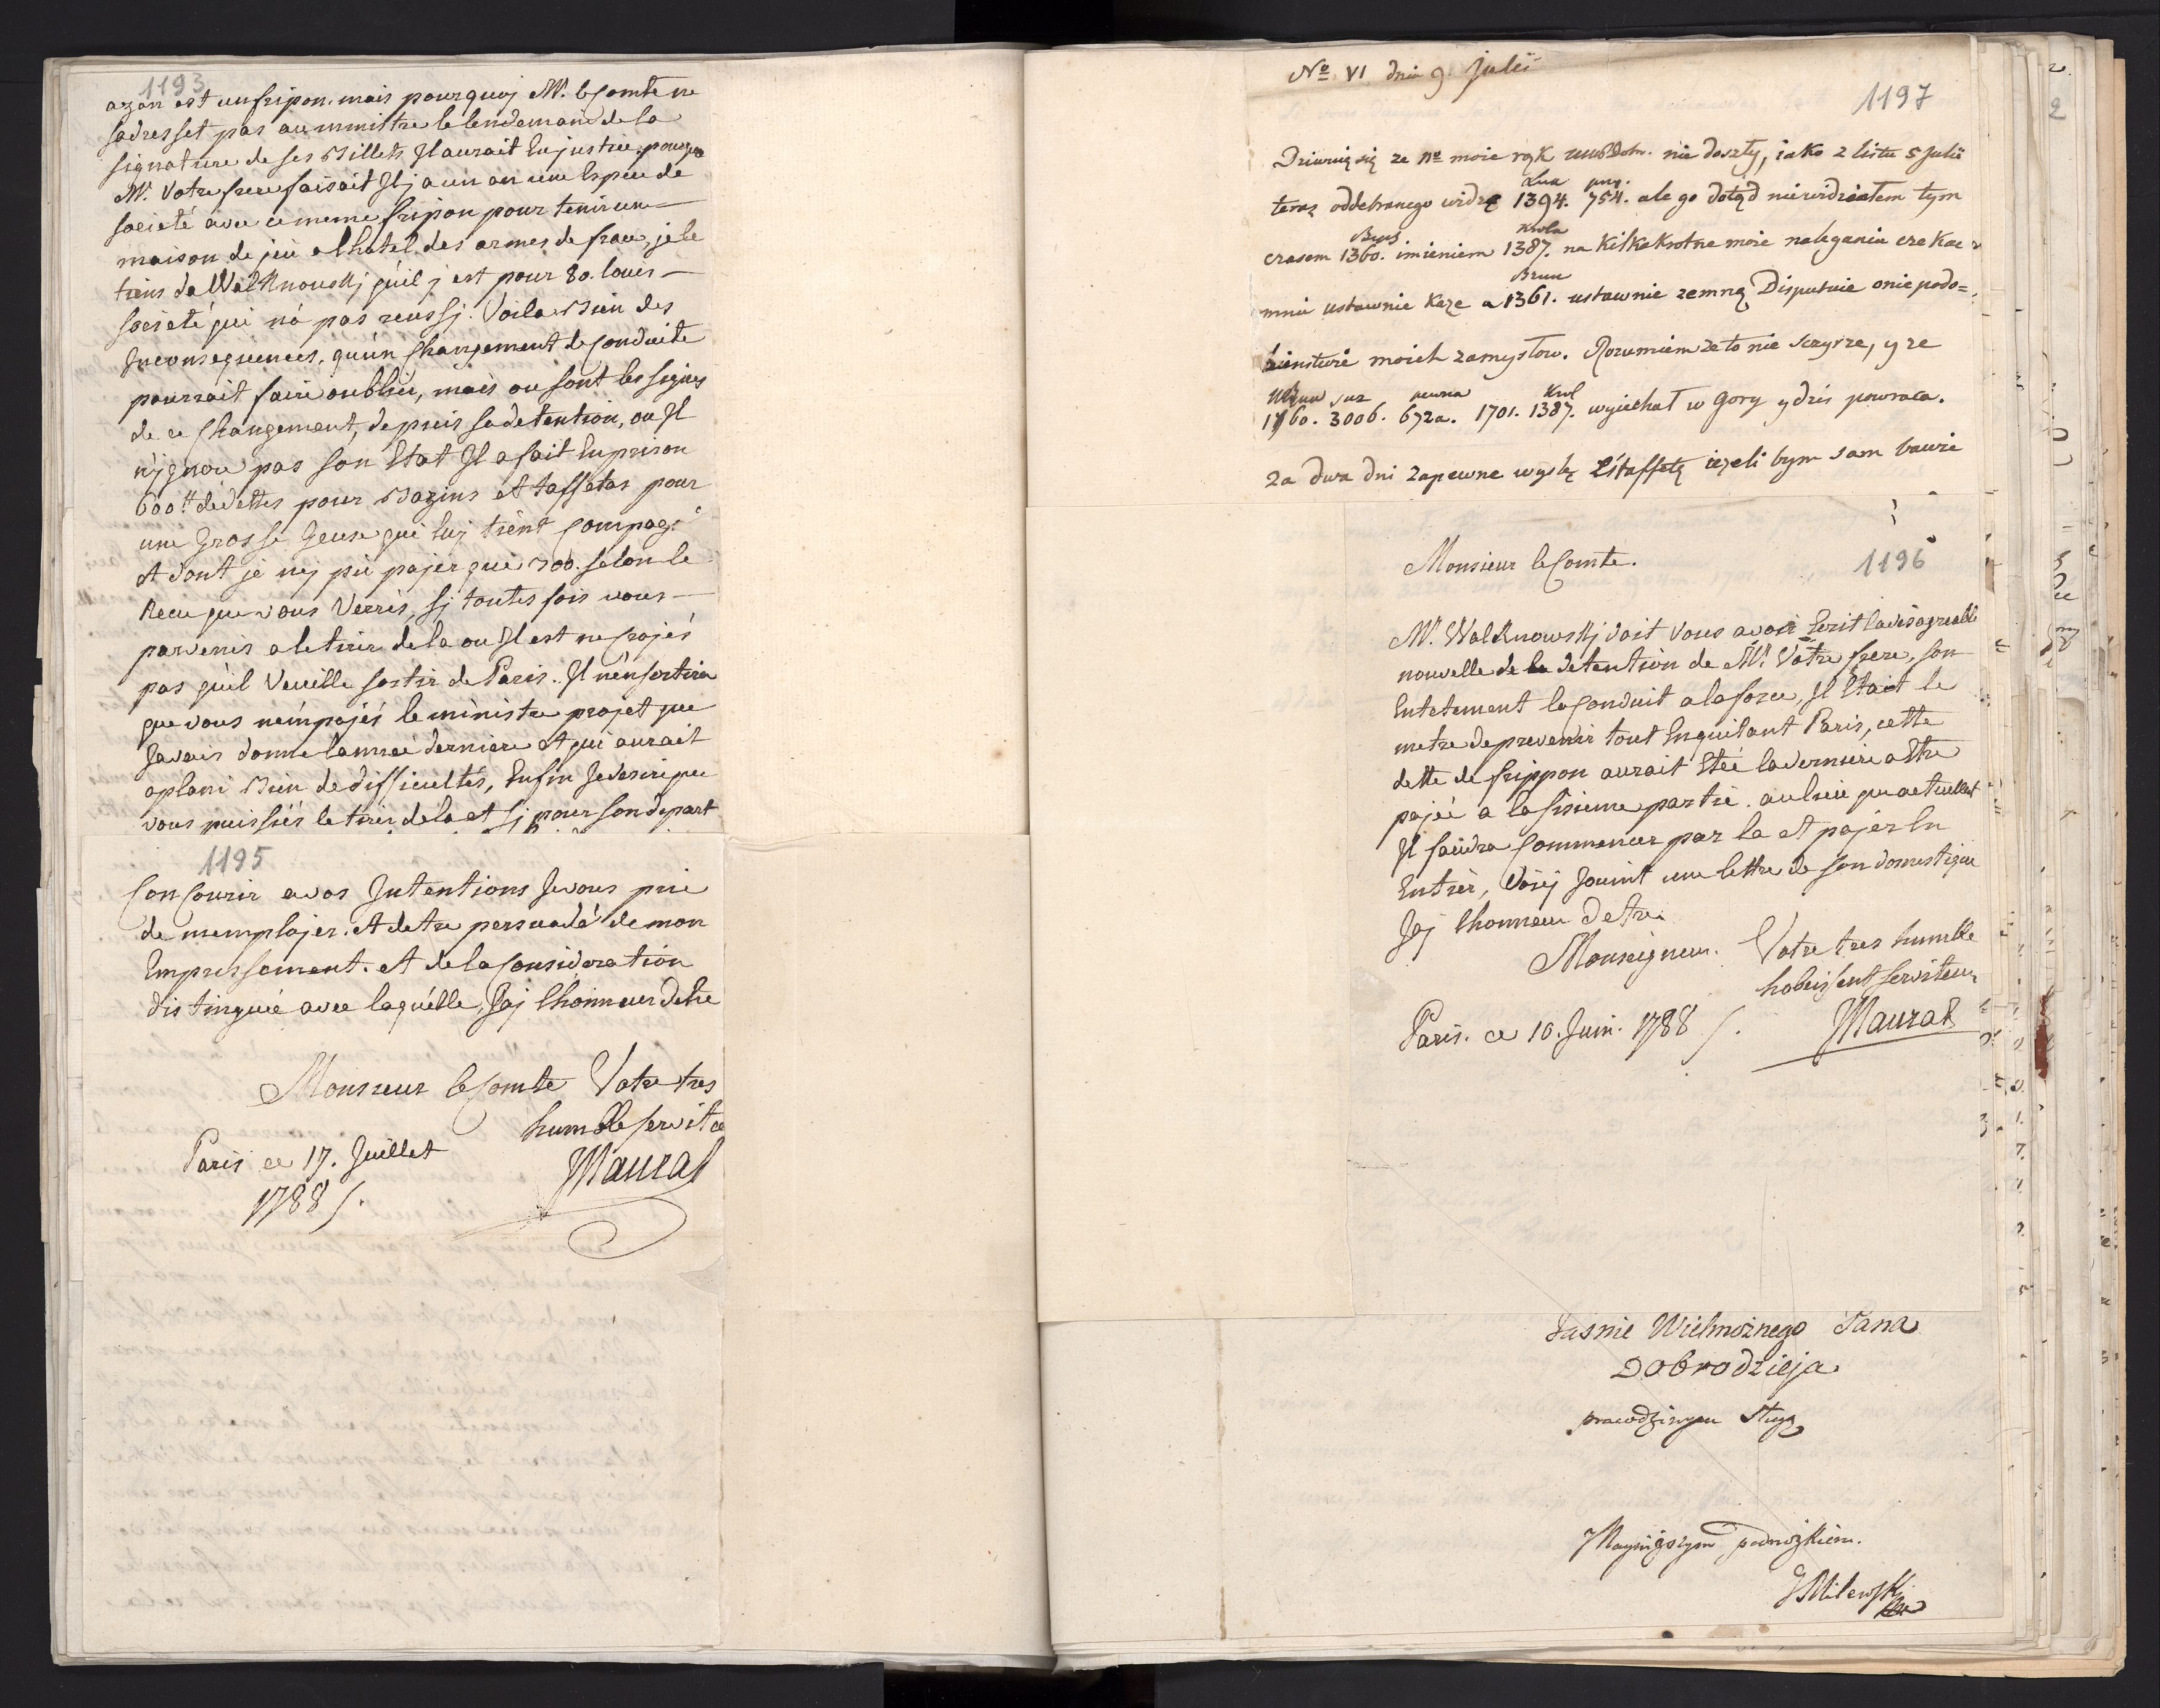 1193
azon est un fripon. mais pourquoj Mr. le Comte ne
sadresset pas au ministre le lendemain de la
signature de ses Billets Il aurait Eu justice. pourquo
Mr. Votre frere faisait Il j a un an une Espece de
societé avec ce meme fripon pour tenir une
maison de jeu a lhotel des armes de france, je le
tiens de Walknowskj qu'il j est pour 80. louis
societé qui n'a pas reussj. Voila Bien des
Inconsequences. qu'un Changement de Conduite
pourrait faire oublier, mais ou sont les signes
de ce Changement, depuis sa detention, ou Il
n'jgnore pas son Etat Il a fait En prison
600tt de dettes pour Bazins et taffetas pour
une Grosse Geuse qui luj tient Compag.e
et dont je n'ej pu pajer que 300. selon le
Recu que vous Verrés, sj toutes fois vous
parvenés a le tirer de la ou Il est ne Crojés
pas qu'il Veuille sortir de Paris. Il n'en sortira
que vous n'emplojés le ministre projet que
Javais donné lannée derniere et qui aurait
aplani Bien de difficultés, Enfin Je desire que
vous puissiés le tirer de la et sj pour son depart
1195
Concourir a vos Intentions Je vous prie
de memplojer. et detre persuadé de mon
Empressement. et de la Consideration
distinguée avec laquelle, Jaj lhonneur detre
Monsieur le Comte Votre tres
humble servite
Paris ce 17. Juillet
Maurat
1788 /.
No VI dnia 9. Julii
1197
Dziwuię się ze No moie rąk nie doszły, iako z listu 5 Julii
teraz oddebranego widzę 1394. 754. ale go dotąd niewidziałem tym
Krola
czasem 1360. imieniem 1387. na kilkakrotne moie naleganie czekać
Brun
mnie ustawnie każe a 1361. ustawnie zemną Disputuie o niepodo=
bieństwie moich zamysłow. Rozumiem ze to nie szczyrze, y ze
Krol
1760. 3006. 672a. 1701. 1387. wyiechał w Gory y dziś powraca.
Za dwa dni zapewne wyslę Estaffetę ieżeli bym sam bawić
Monsieur le Comte.
1196
Mr. Walknowskj doit vous avoir Ecrit la desagreable
nouvelle de la detention de Mr. Votre frere, son
Entetement la Conduit a la force, Il Etait le
metre de prevenir tout En quitant Paris, cette
dette de frippon aurait Etée la derniere a Etre
pajée a la sisieme partie. au lieu que actuellent
Il faudra Commencer par la et pajer En
Entier, Voicj Joint une lettre de son domestique
Jaj lhonneur detre.
Monseigneur. Votre tres humble
hobeissent serviteur
Paris. ce 10. Juin. 1788 /.
Maurat
Jasnie Wielmoznego Pana
Dobrodzieja
prawdziwym Sługą
Naynizszym podnóżkiem.
JMilewski